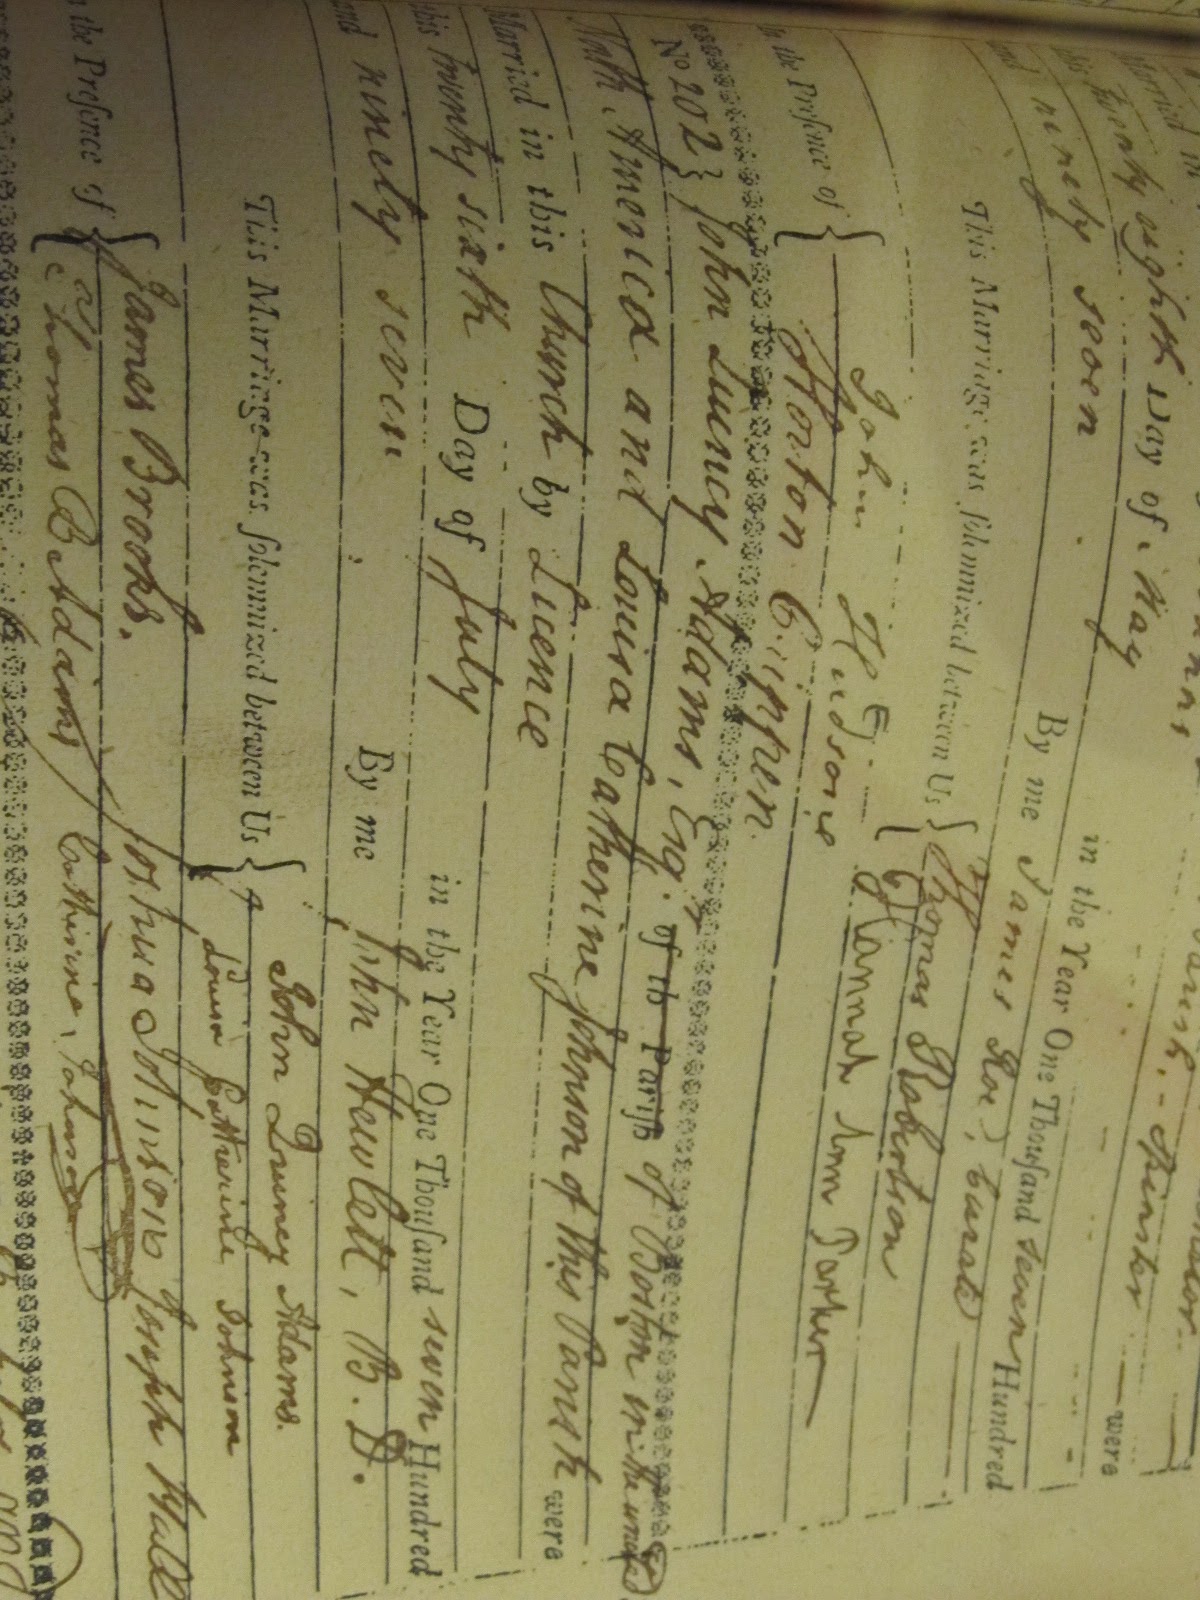 Married in
this Twenty eighth Day of May in the Year One Thouſand seven Hundred
and ninety seven By me James Roe, Curate
This Marriage was ſolemnized between Us { Thomas Robertson
Hannah Ann Parker
In the Preſence of { John Hudson
Horton
No 202 } John Quincy Adams, Esq. of the Pariſh of Boston in the united
North America and Louisa Catherine Johnson of this Parish were
Married in this Church by Licence
this twenty sixth Day of July in the Year One Thouſand seven Hundred
and ninety seven By me John Hewlett, B. D.
This Marriage was ſolemnized between Us { John Quincy Adams.
Louisa Catherine Johnson
In the Preſence of { James Brooks. Joshua Johnson Joseph Hall
Thomas B Adams Catherine Johnson